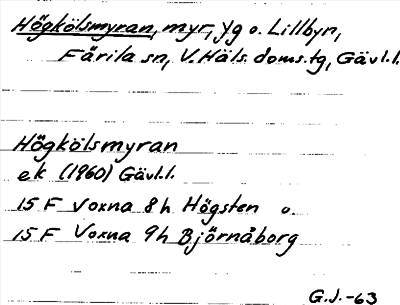 Högkölsmyran, myr, yg o. Lillbyn,
Färila sn, V. Häls. doms.tg, Gävl.l.
Högkölsmyran
ek (1960) Gävl.l.
15 F Voxna 8h Högsten o.
15 F Voxna 9h Björnåborg
G.J.-63